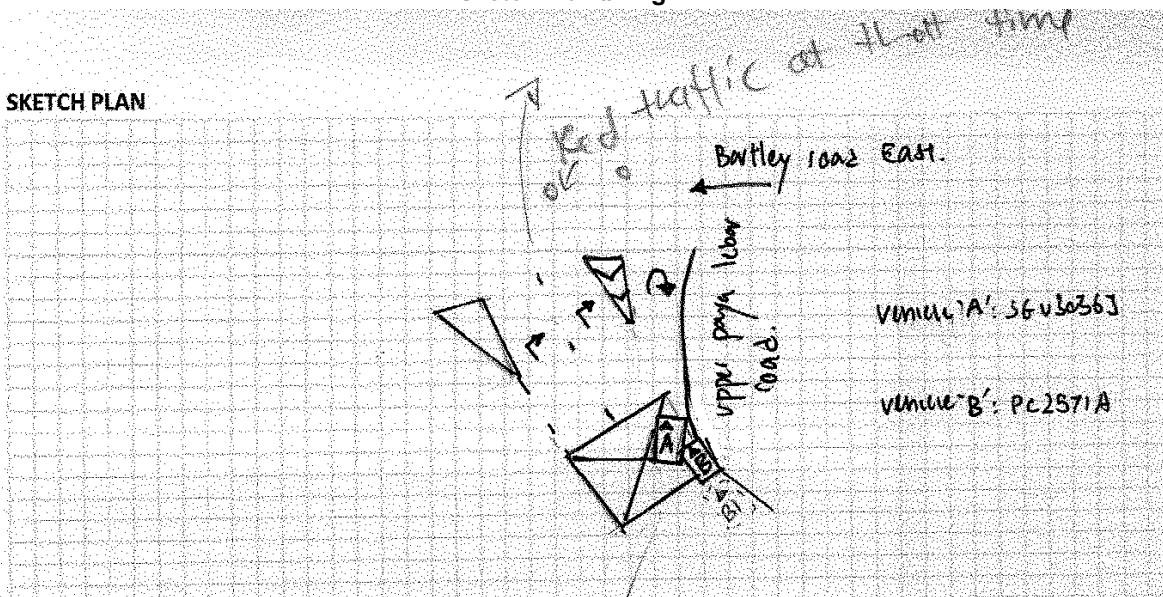 Red traffic at that time
SKETCH PLAN
Bartley road East.
upper paya lebar
road.
vehicle 'A': SGU3036J
vehicle 'B': PC2571A
A
B
B1